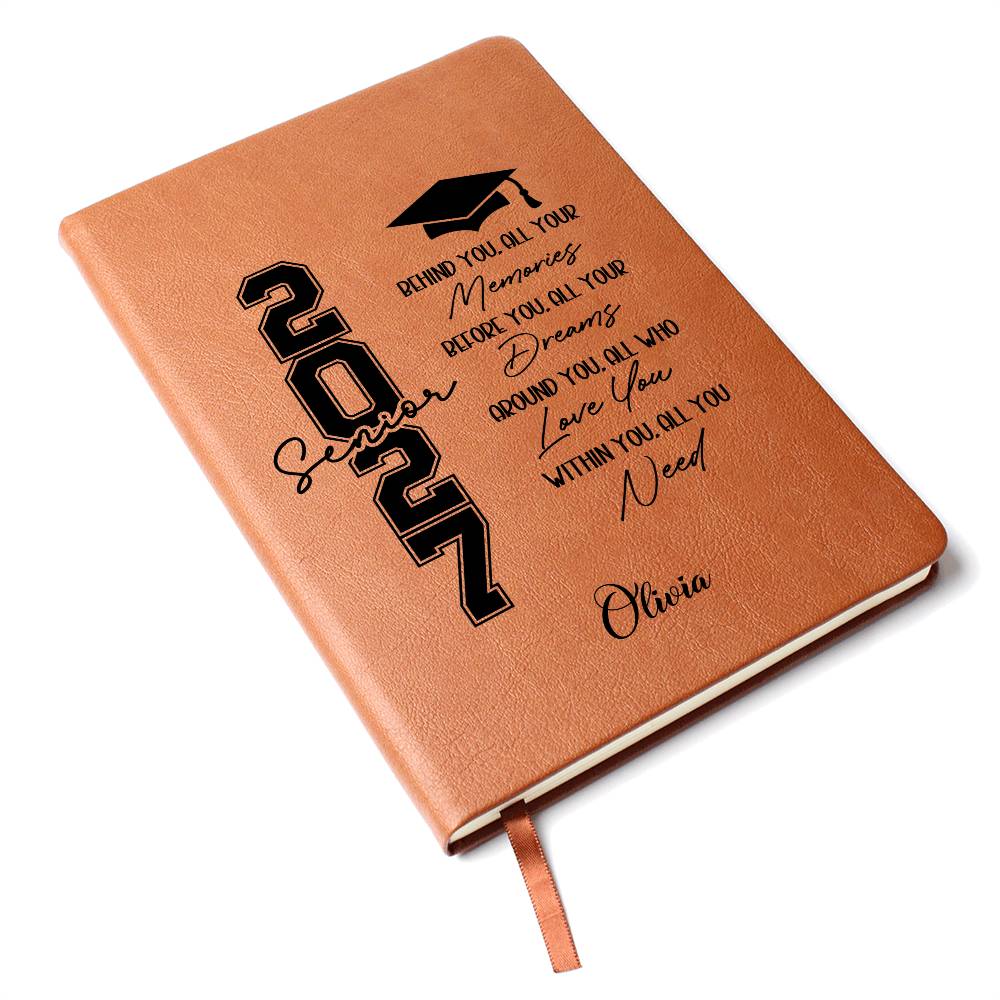 2027
Senior
BEHIND YOU, ALL YOUR
Memories
BEFORE YOU, ALL YOUR
Dreams
AROUND YOU, ALL WHO
Love You
WITHIN YOU, ALL YOU
Need
Olivia